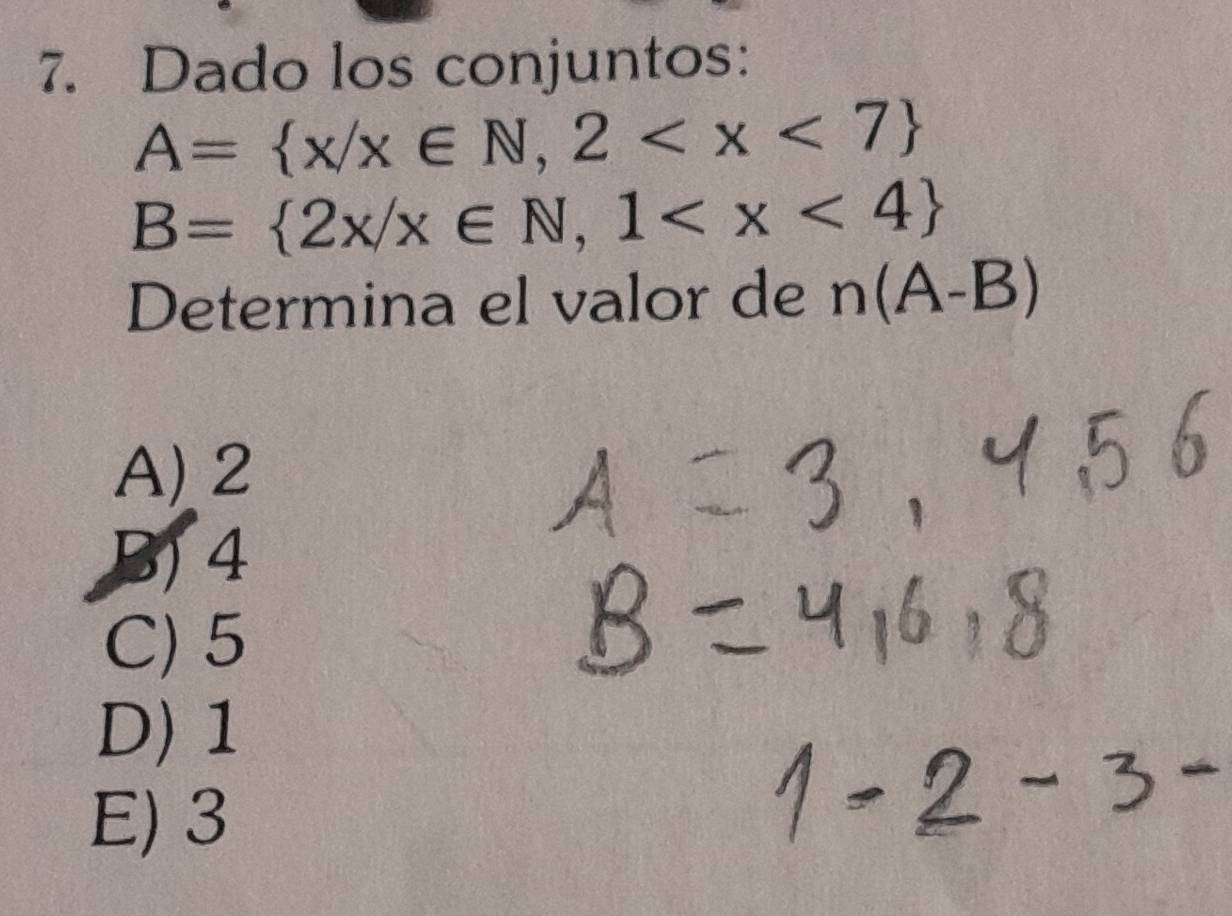 7. Dado los conjuntos:
A= {x/x ∈ ℕ, 2 < x < 7}
B= {2x/x ∈ ℕ, 1< x < 4}
Determina el valor de n(A-B)
A) 2
B) 4
C) 5
D) 1
E) 3
A = 3 , 4 ,5 6
B = 4,6,8
1 - 2 - 3 -